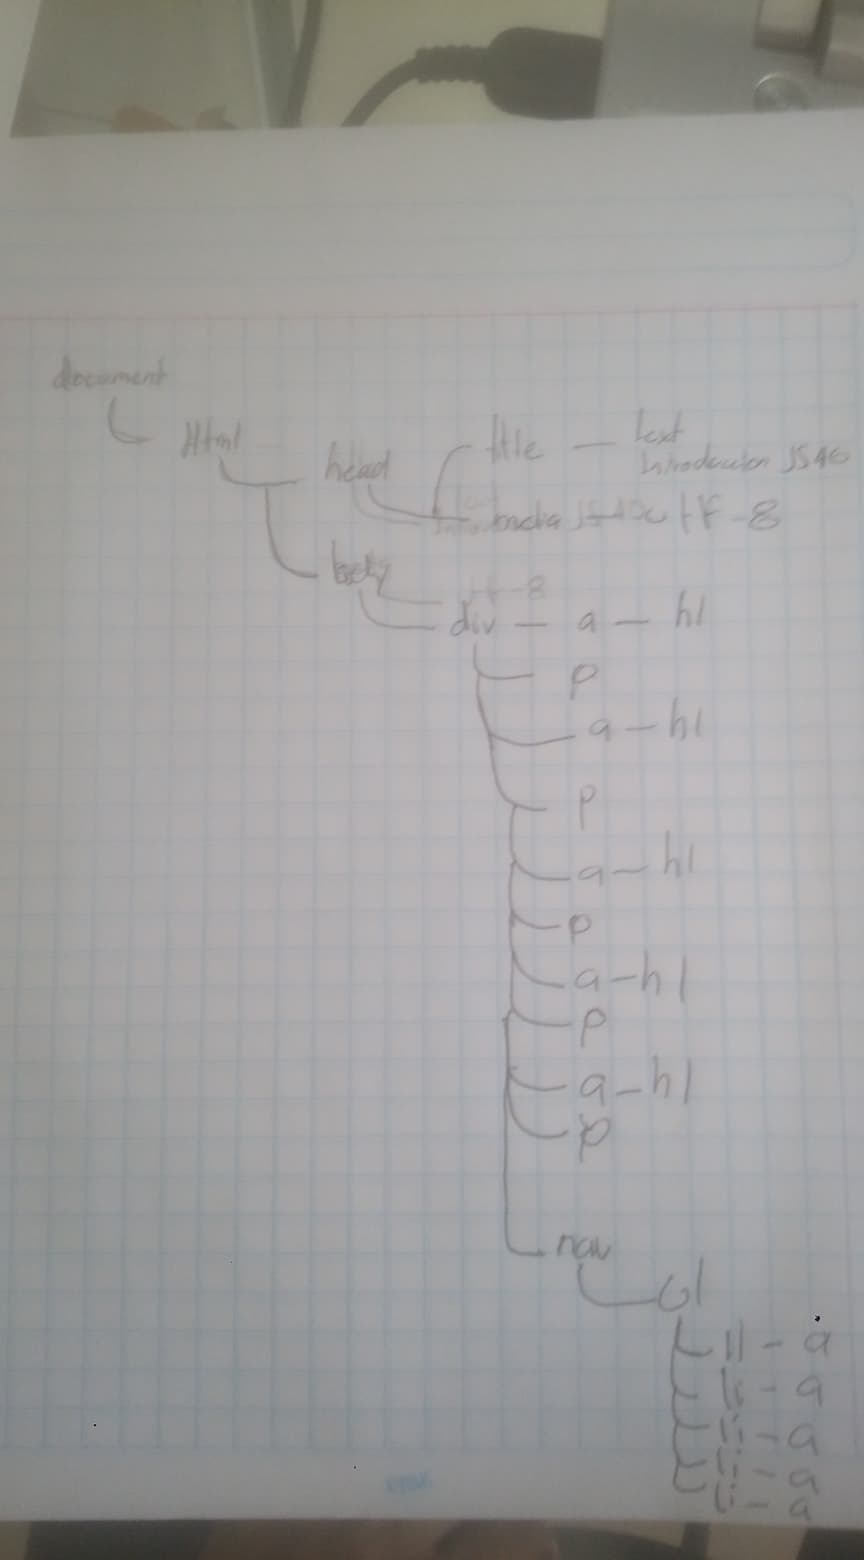 document
Html
head
title — text
Introduccion JS46
utf-8
body
div — a — h1
p
a — h1
p
a — h1
p
a — h1
p
a — h1
p
nav
ul
li - a
li - a
li - a
li - a
li - a